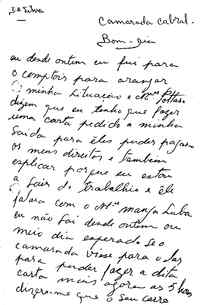 Camarada Cabral.
Bom-dia
eu desde ontem eu fui para
o comptoir para arranjar
minha situação e
dizem que eu tenho que fazer
uma carta pedido a minha
saída para eles poder pagar
os meus direitos e também
explicar porque eu estou
a sair do trabalho e ele
falara com o
eu não fui desde ontem ou
meio dia esperado se o
camarada visse para o dar
para poder fazer a dita
carta mais agora as 5 horas
disseram que o Seu carro